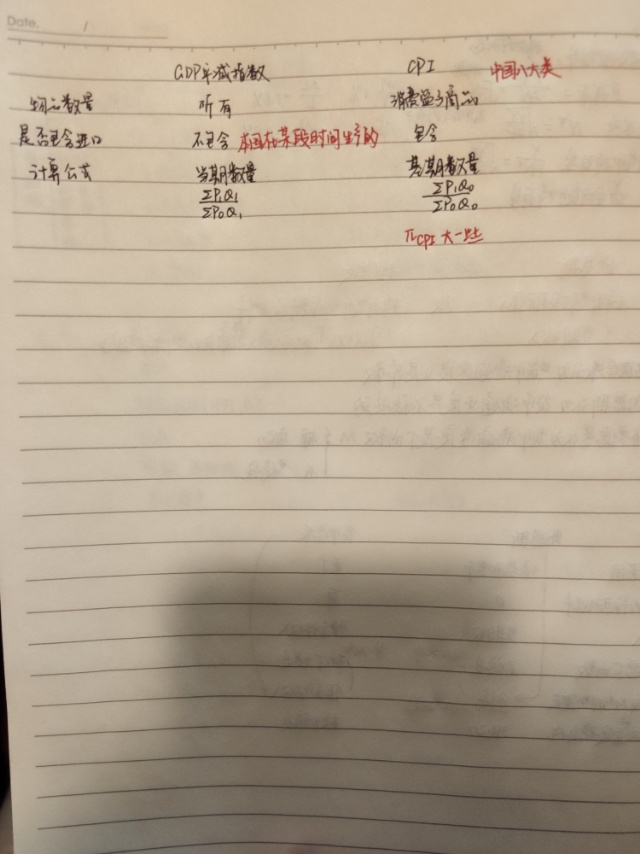 Date. /
GDP平减指数 CPI 中国八大类
物品数量 所有 消费篮子商品
是否包含进口 不包含 本国在某段时间生产的 包含
计算公式 当期数量 基期数量
ΣP₁Q₁ ΣP₁Q₀
ΣP₀Q₁ ΣP₀Q₀
πCPI 大一些